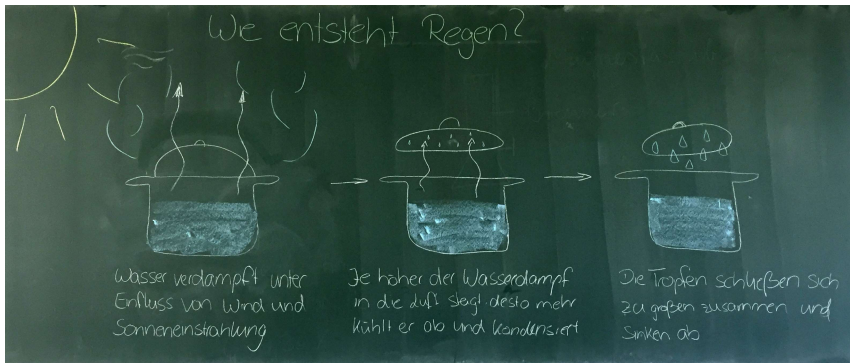 Wie entsteht Regen?
Wasser verdampft unter
Einfluss von Wind und
Sonneneinstrahlung
Je höher der Wasserdampf
in die Luft steigt desto mehr
kühlt er ab und kondensiert
Die Tropfen schließen sich
zu großen zusammen und
sinken ab